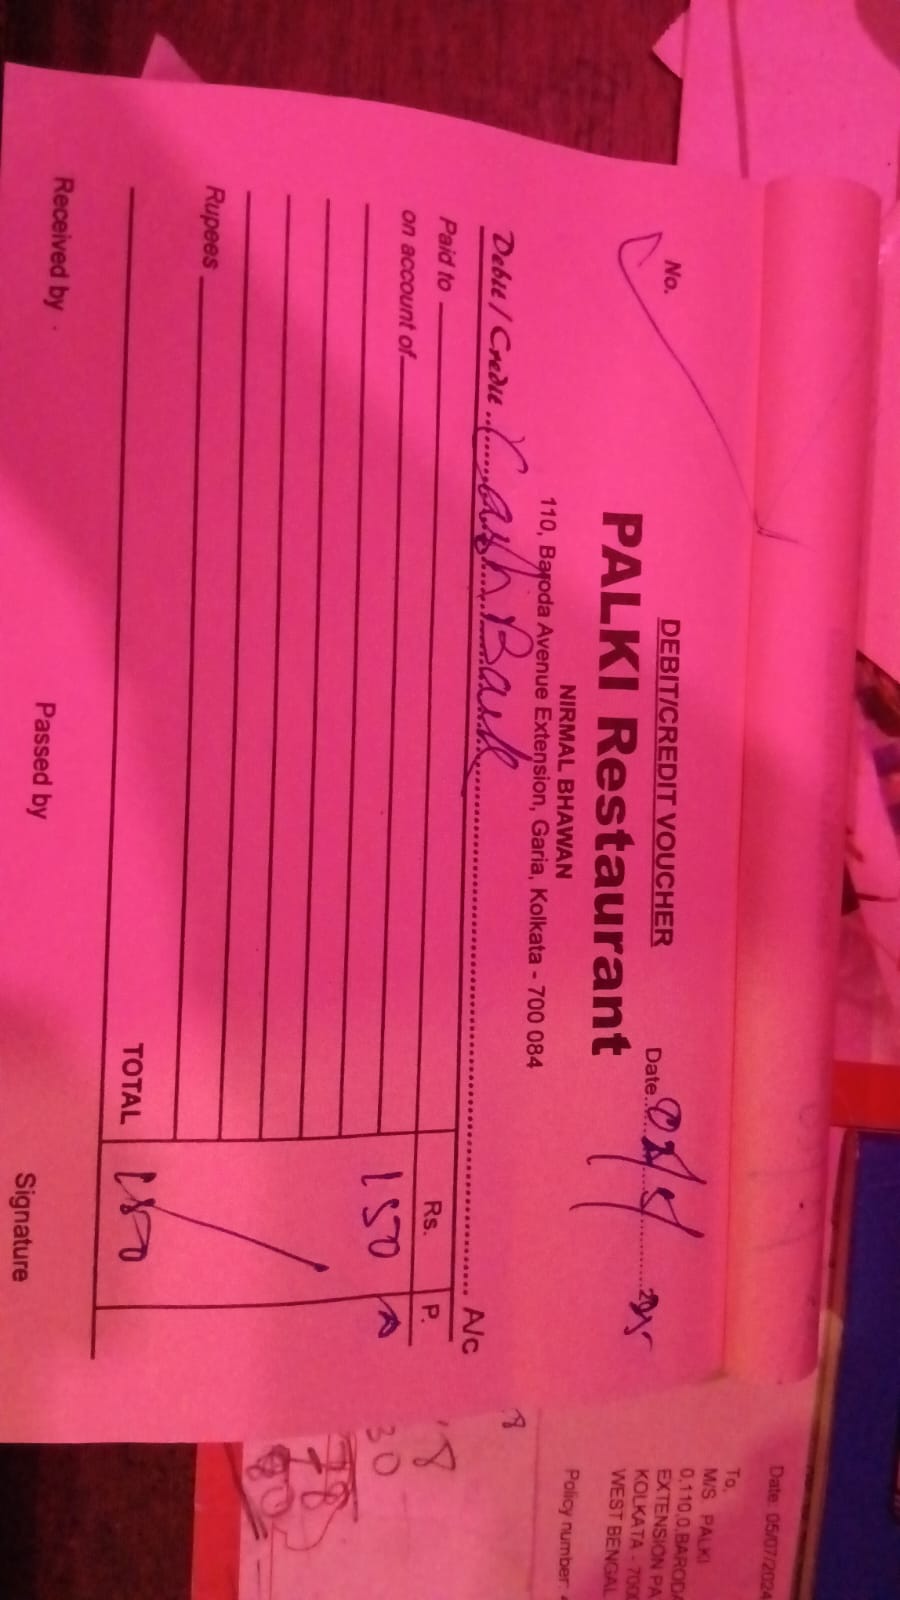 DEBIT/CREDIT VOUCHER
No.
Date
PALKI Restaurant
NIRMAL BHAWAN
110, Baroda Avenue Extension, Garia, Kolkata - 700 084
Debit / Credit Cash A/c
Paid to
Rs. P.
on account of
150
Rupees
TOTAL 150
Received by
Passed by
Signature
Date 05/07/2024
To,
M/S PALKI
0,110,0,BARODA
EXTENSION PA
KOLKATA - 700
WEST BENGAL
Policy number: